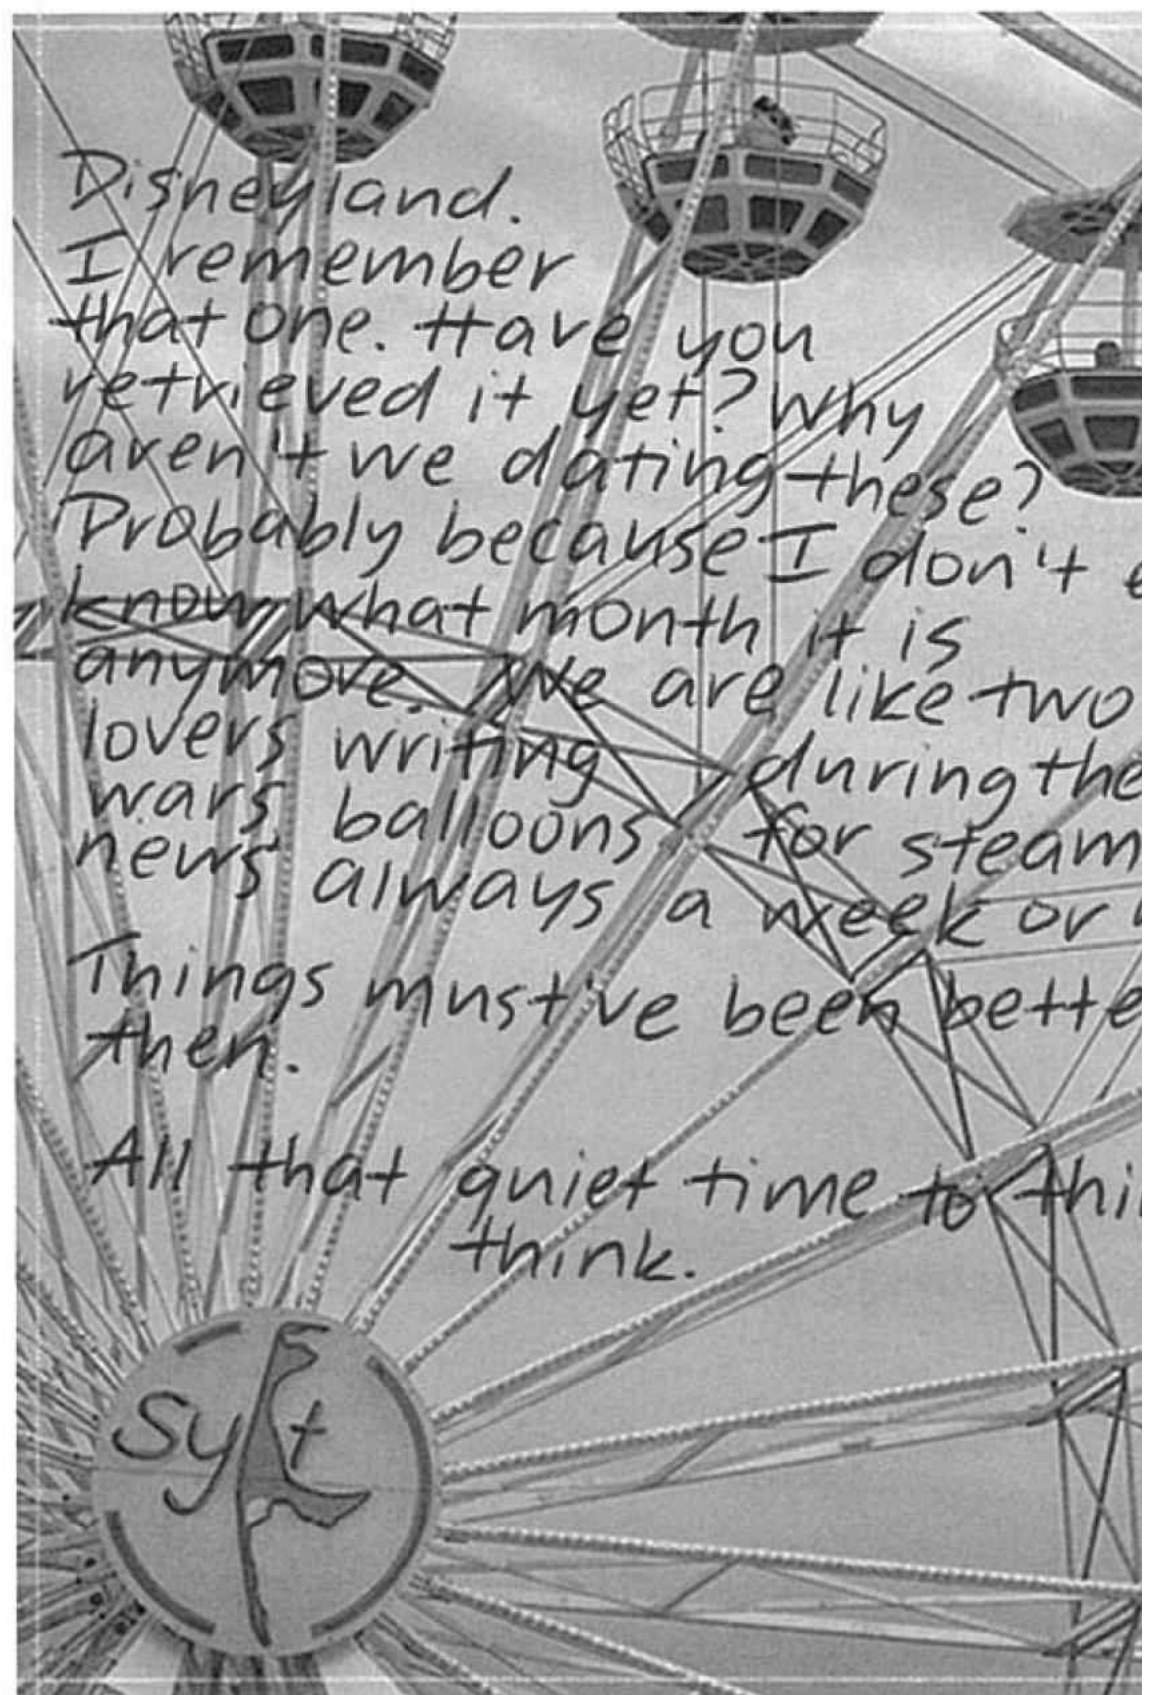 Disneyland.
I remember
that one. Have you
retrieved it yet? Why
aren't we dating these?
Probably because I don't
know what month it is
anymore. We are like two
lovers writing during the
wars balloons for steam
news always a week or
Things must've been bette
then.
All that quiet time to thi
think.
Sylt